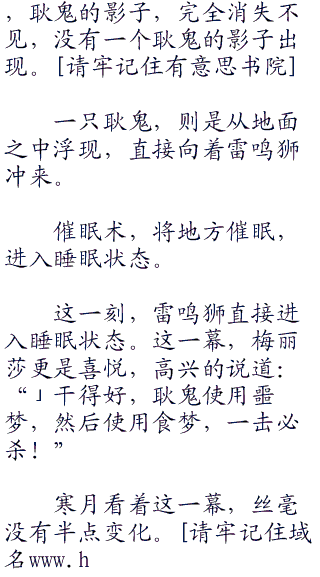 ，耿鬼的影子，完全消失不
见，没有一个耿鬼的影子出
现。[请牢记住有意思书院]
一只耿鬼，则是从地面
之中浮现，直接向着雷鸣狮
冲来。
催眠术，将地方催眠，
进入睡眠状态。
这一刻，雷鸣狮直接进
入睡眠状态。这一幕，梅丽
莎更是喜悦，高兴的说道：
“」干得好，耿鬼使用噩
梦，然后使用食梦，一击必
杀！”
寒月看着这一幕，丝毫
没有半点变化。[请牢记住域
名www.h